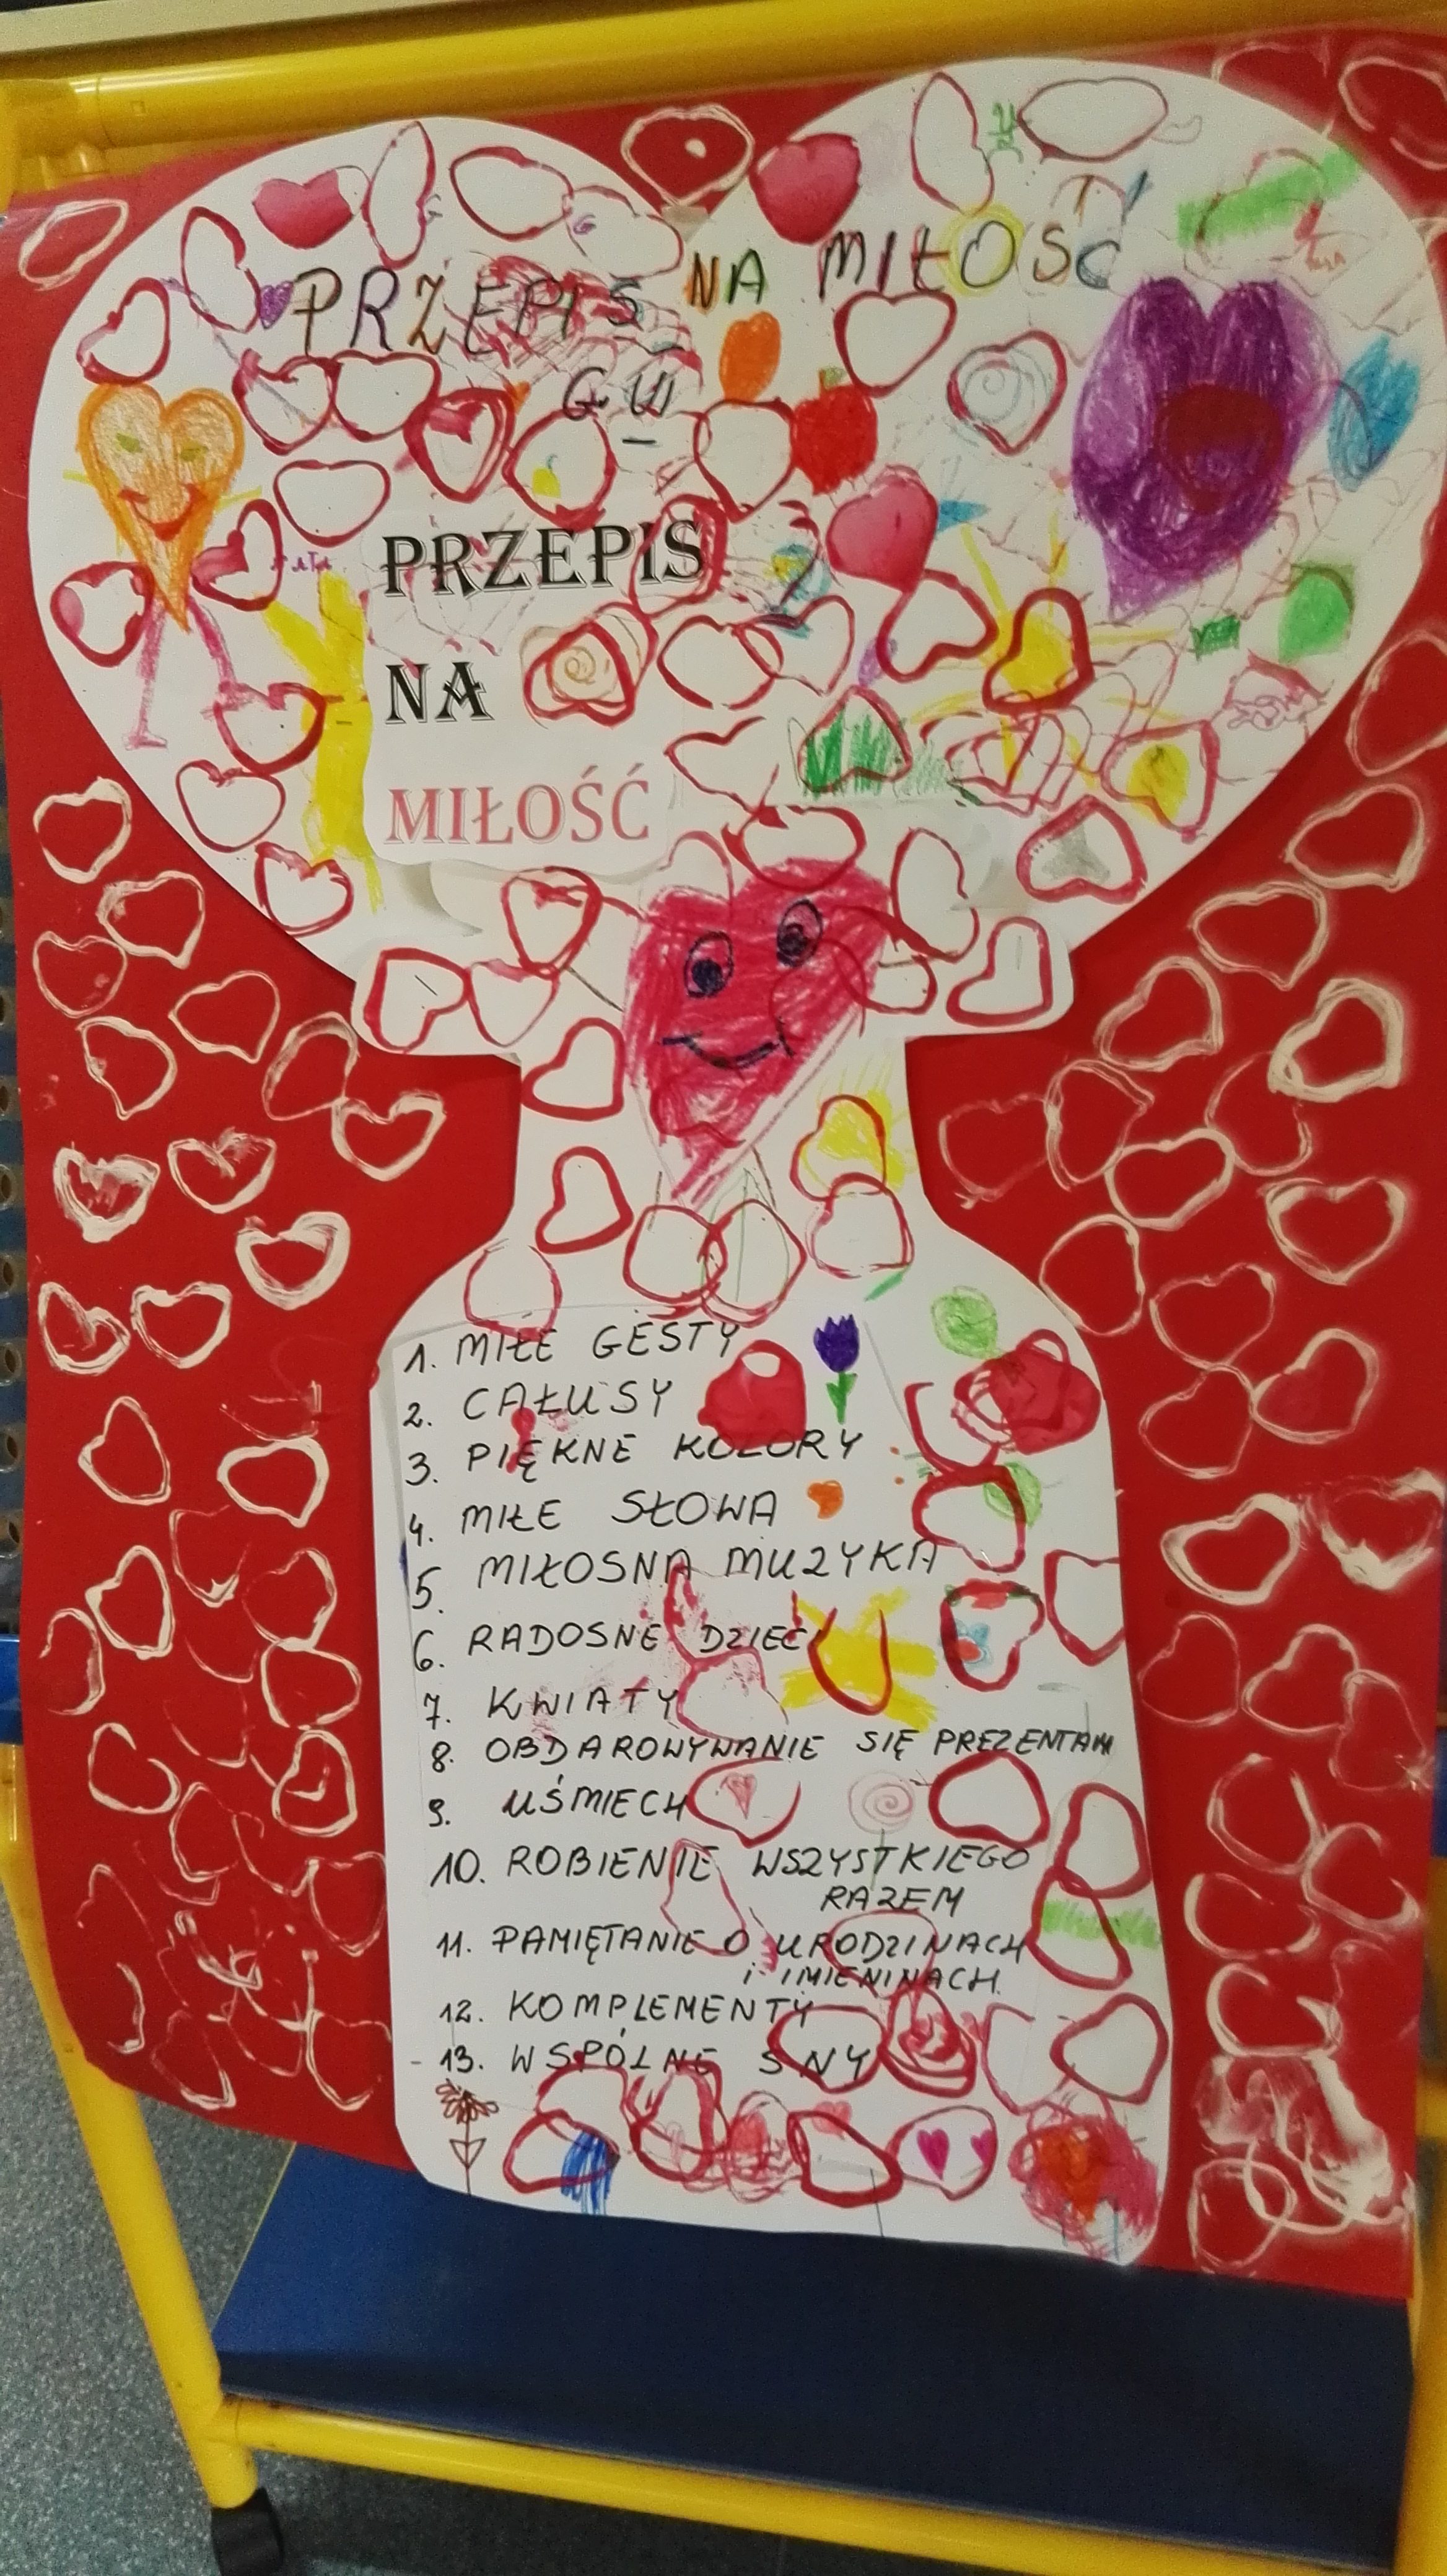 PRZEPIS NA MIŁOSC
G W
PRZEPIS
NA
MIŁOŚĆ
1. MIŁE GESTY
2. CAŁUSY
3. PIĘKNE KOLORY
4. MIŁE SŁOWA
5. MIŁOSNA MUZYKA
6. RADOSNE DZIECI
7. KWIATY
8. OBDAROWYWANIE SIĘ PREZENTAMI
9. UŚMIECH
10. ROBIENIE WSZYSTKIEGO
RAZEM
11. PAMIĘTANIE O URODZINACH
i IMIENINACH.
12. KOMPLEMENTY
- 13. WSPÓLNE SNY